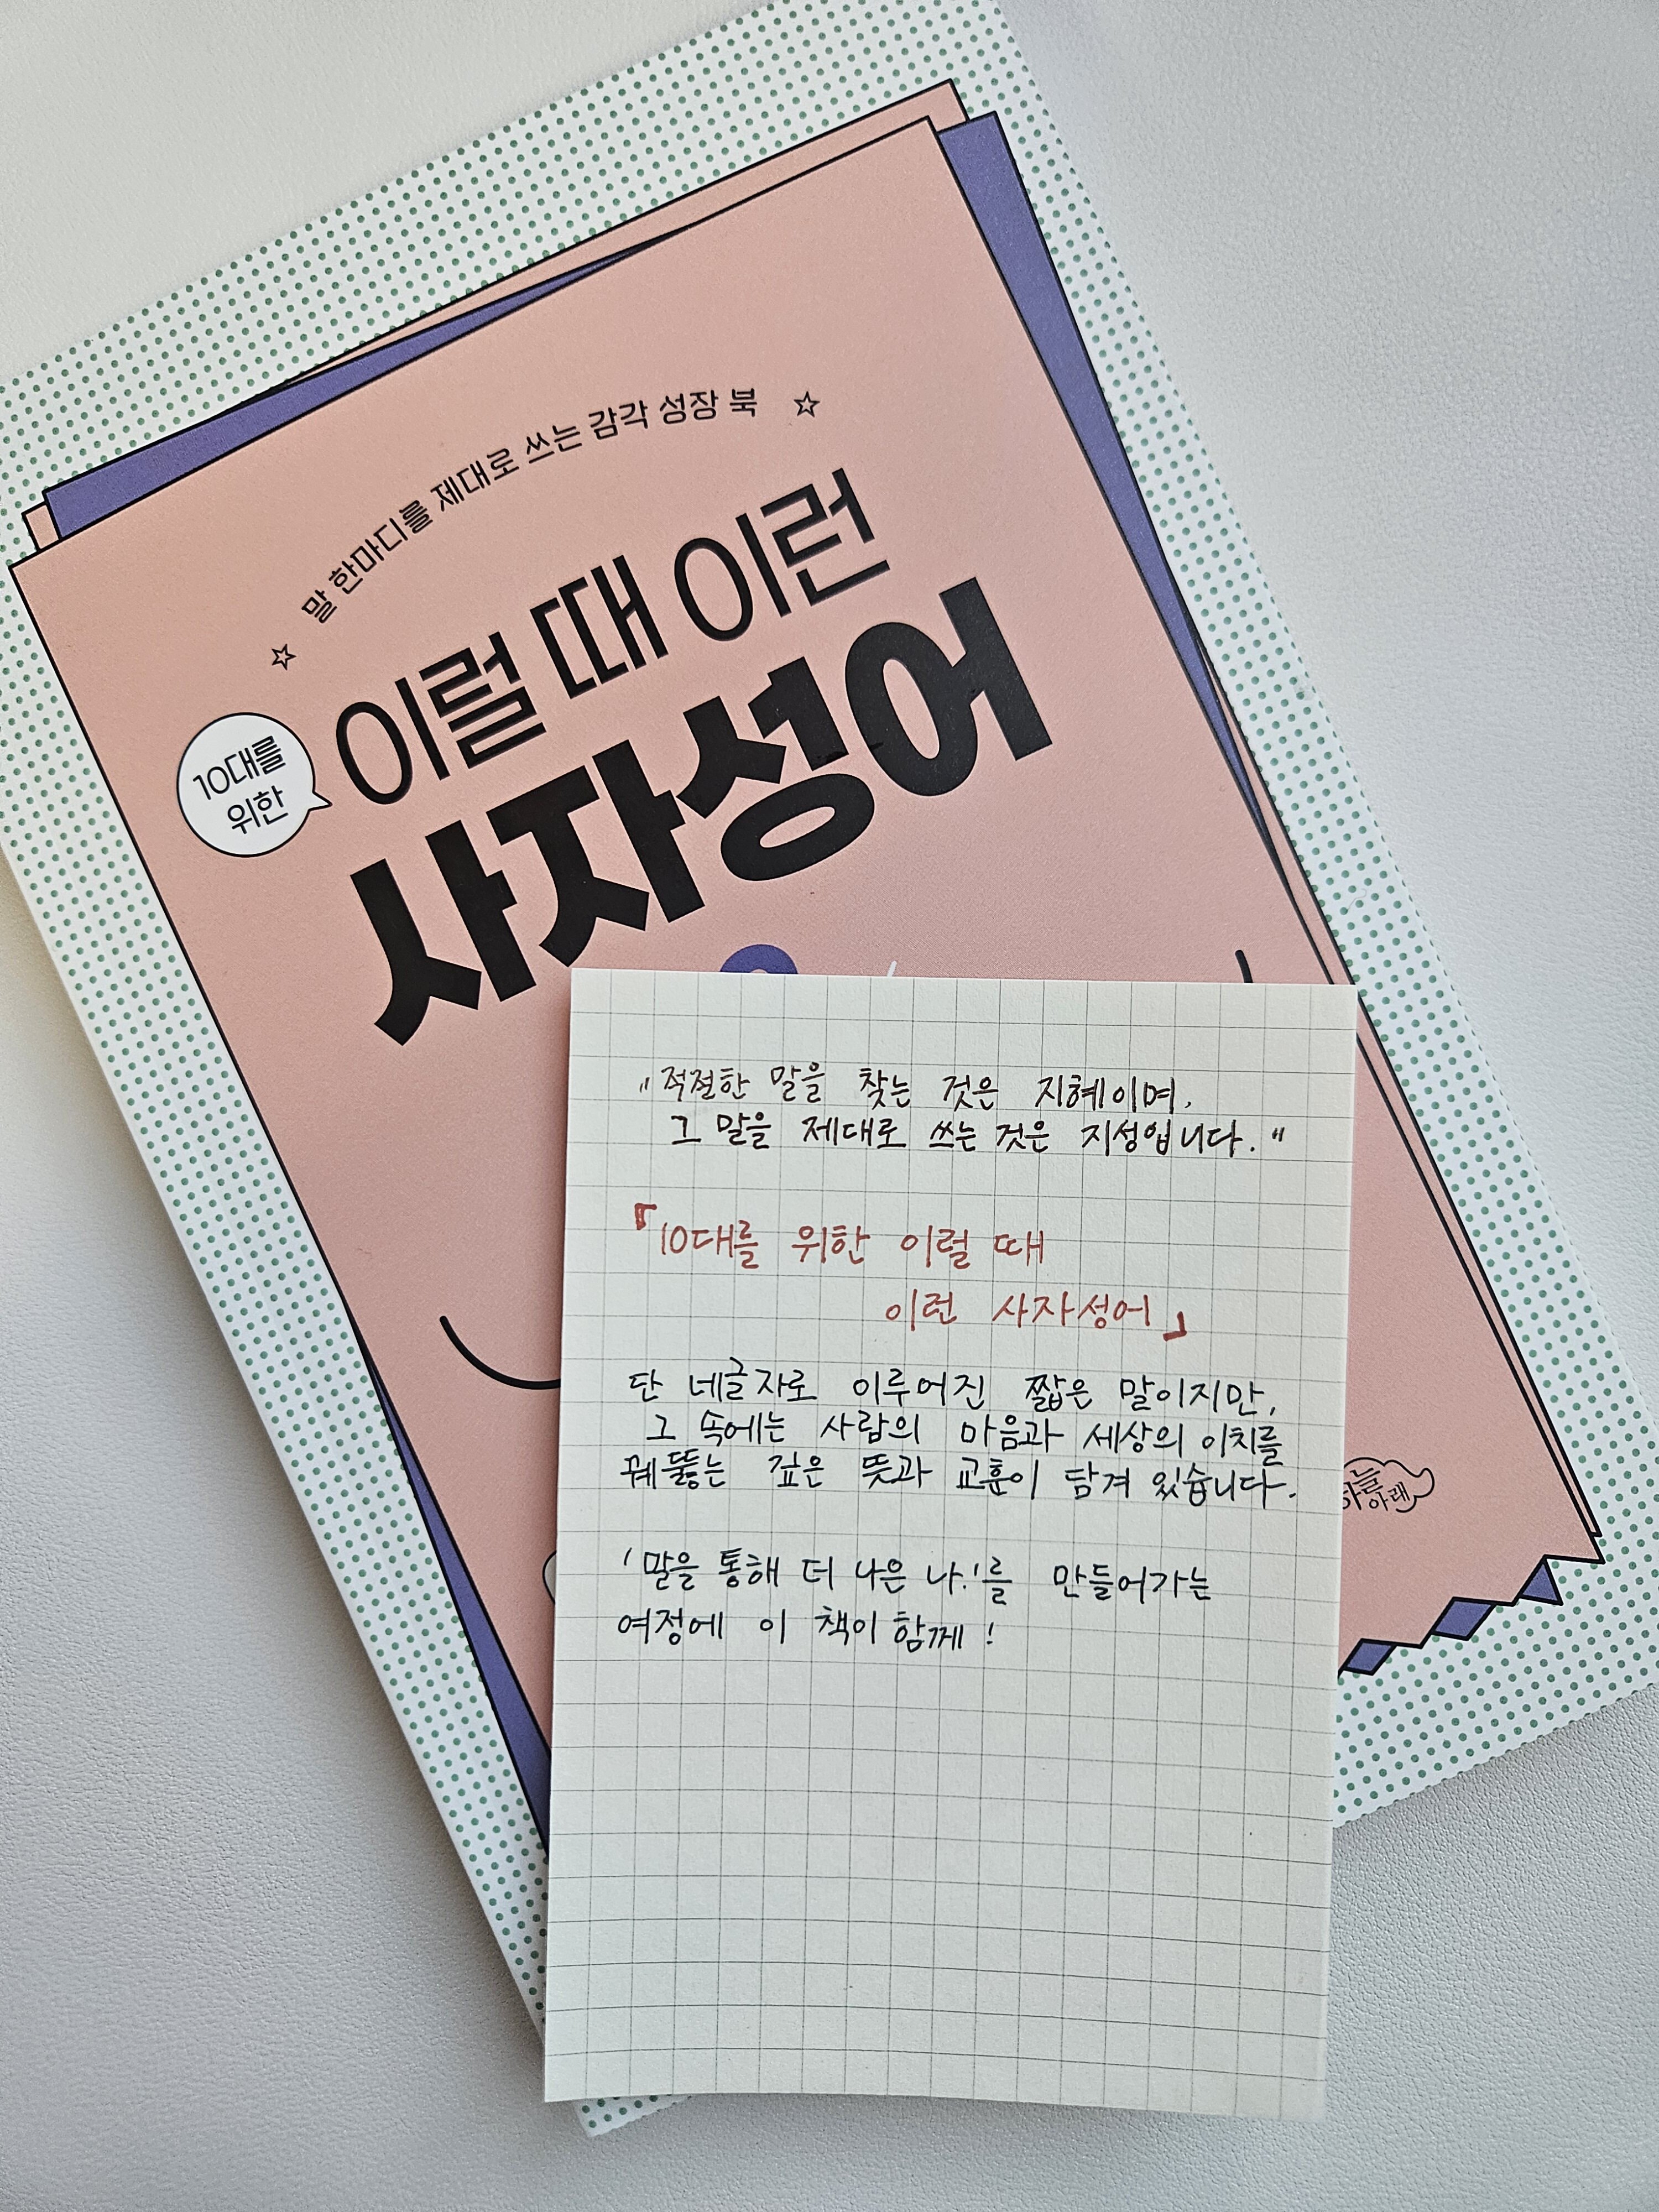 ☆ 말 한마디를 제대로 쓰는 감각 성장 북 ☆
10대를
위한
이럴 때 이런
사자성어
"적절한 말을 찾는 것은 지혜이며,
그 말을 제대로 쓰는 것은 지성입니다."
『10대를 위한 이럴 때
이런 사자성어』
단 네글자로 이루어진 짧은 말이지만,
그 속에는 사람의 마음과 세상의 이치를
꿰뚫는 깊은 뜻과 교훈이 담겨 있습니다.
'말을 통해 더 나은 나.'를 만들어가는
여정에 이 책이 함께!
하늘
아래